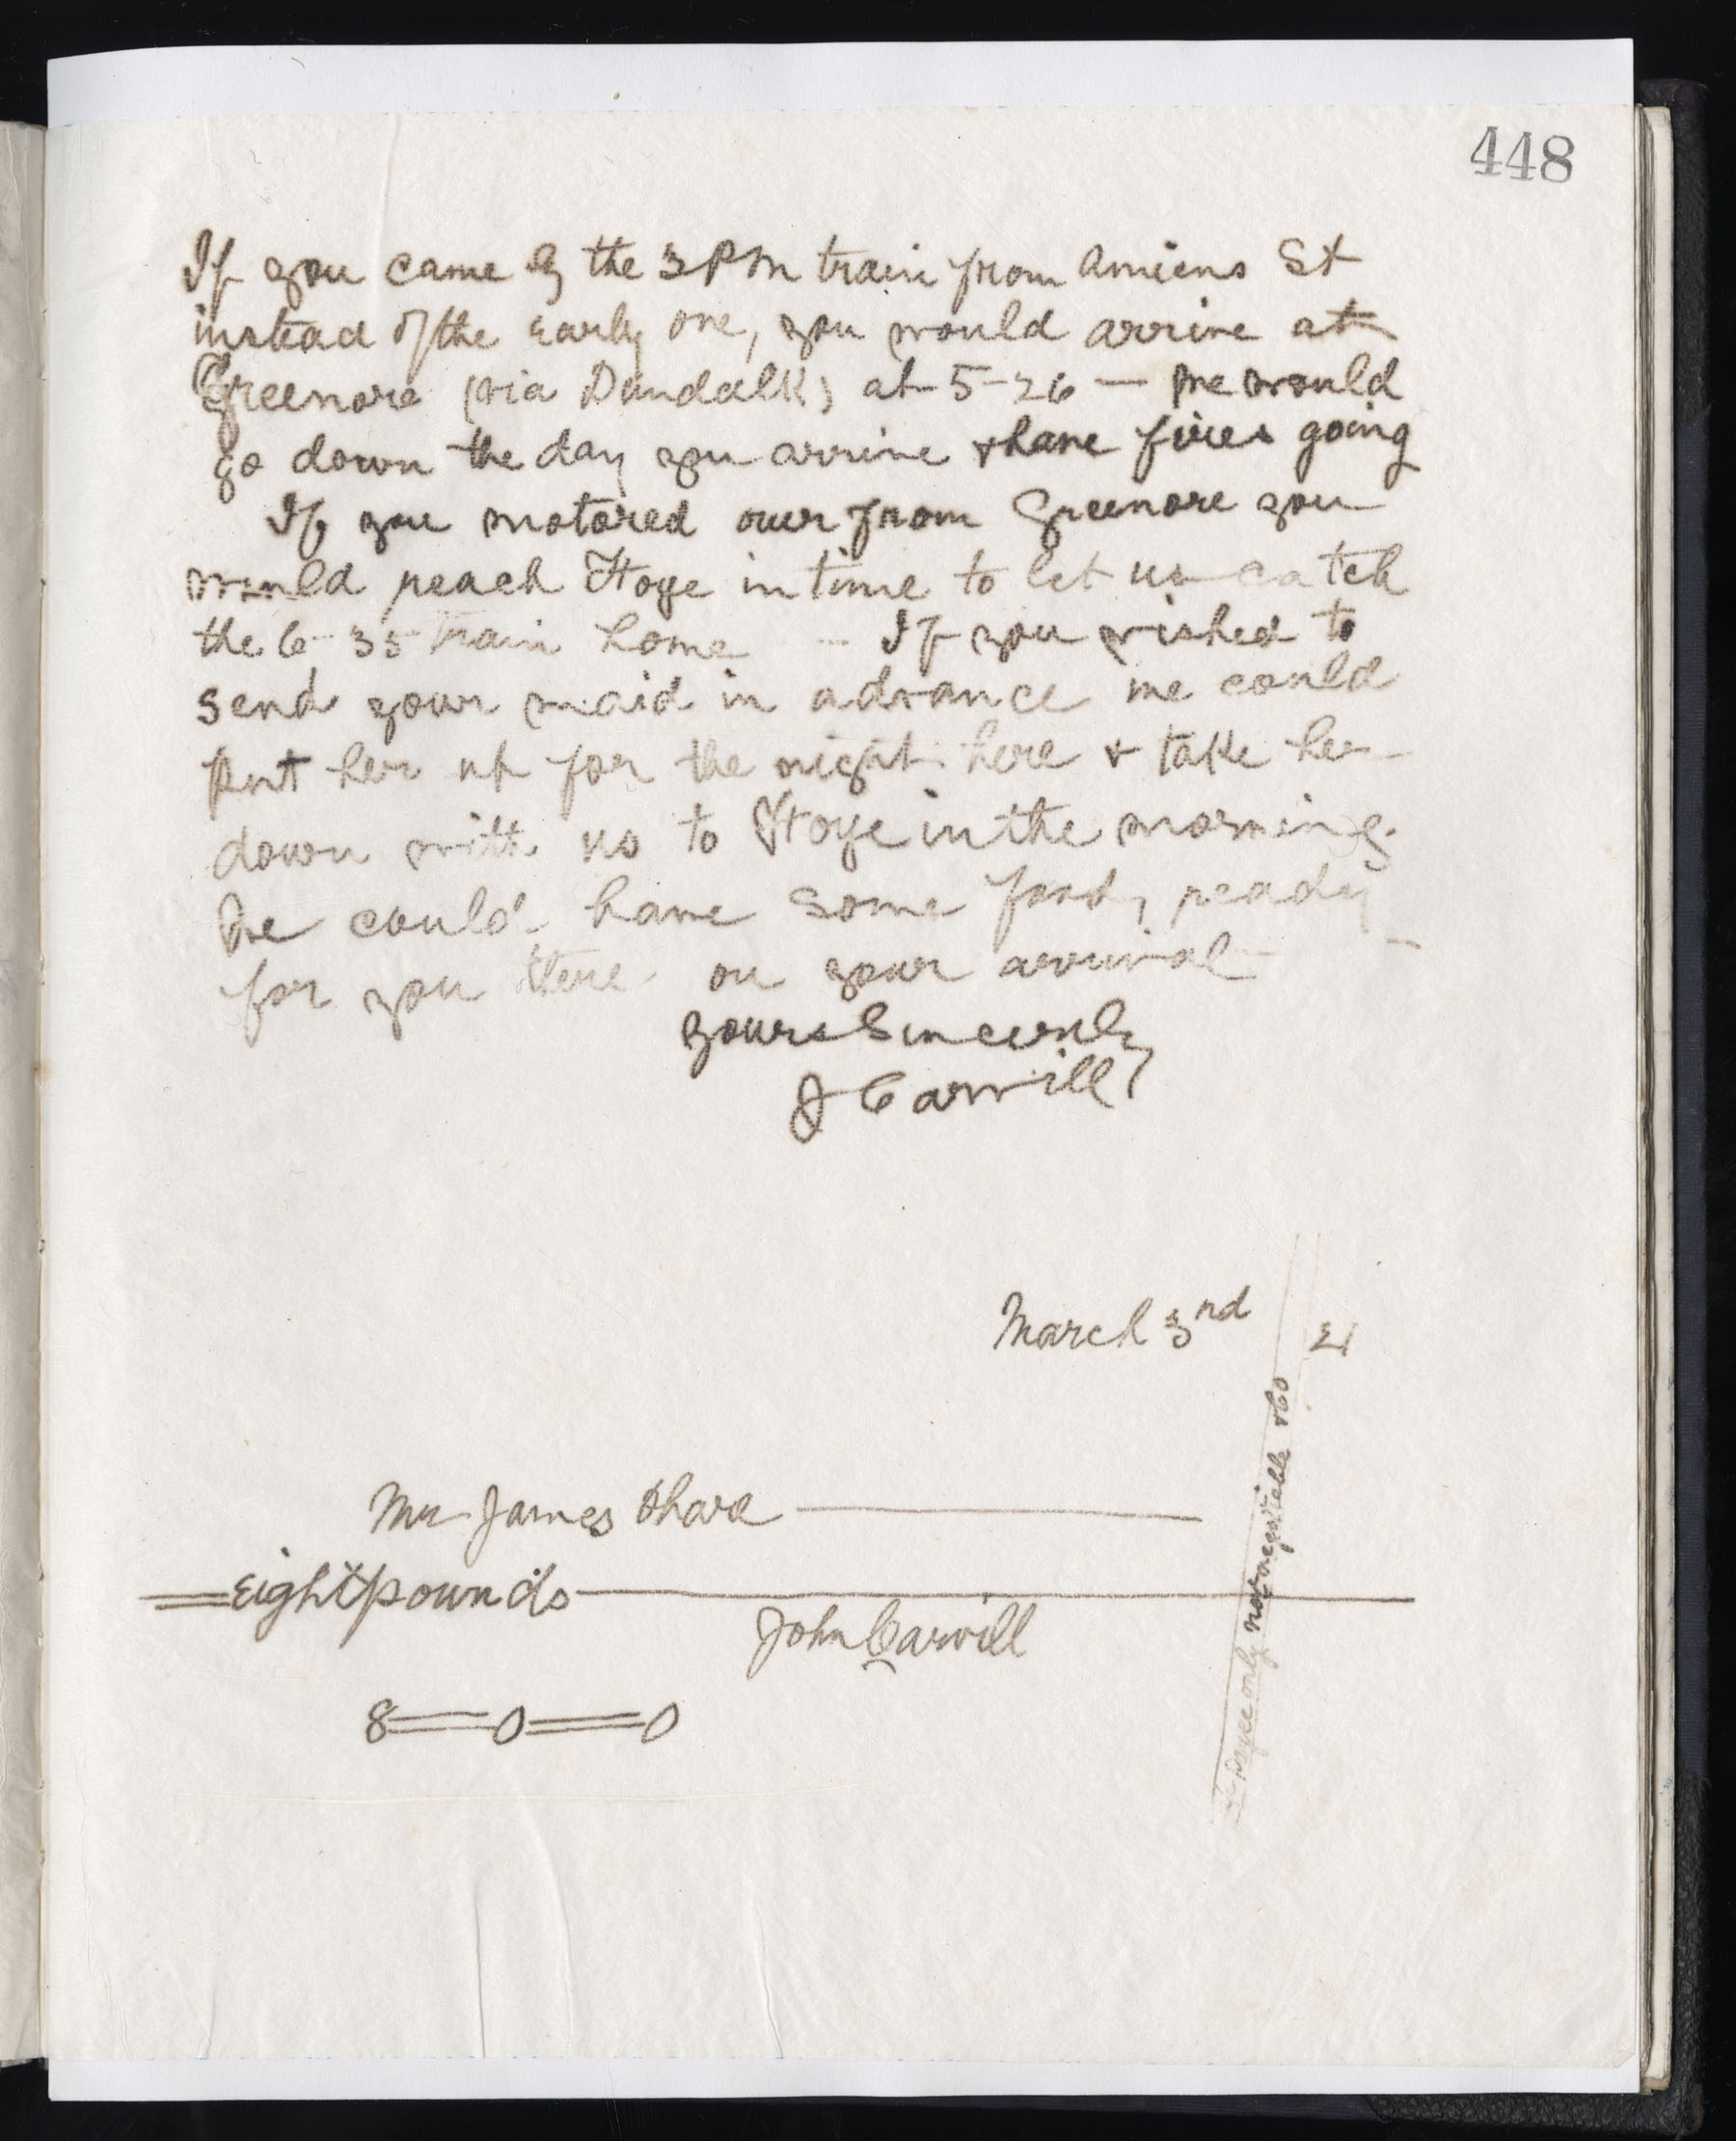 448
If you came by the 3 PM train from Amiens St
instead of the early one, you would arrive at
Greenore (via Dundalk) at 5-26 — we would
go down the day you arrive & have fires going
If you motored over from Greenore you
would reach Hoye in time to let us catch
the 6-35 train home — If you wished to
send your maid in advance we could
put her up for the night here & take her
down with us to Hoye in the morning.
We could have some food, ready
for you there on your arrival —
yours Sincerely
J Carvill
March 3nd 21
Mr James Ohare
Eight pounds
John Carvill
8 = 0 = 0
payee only not negotiable & Co